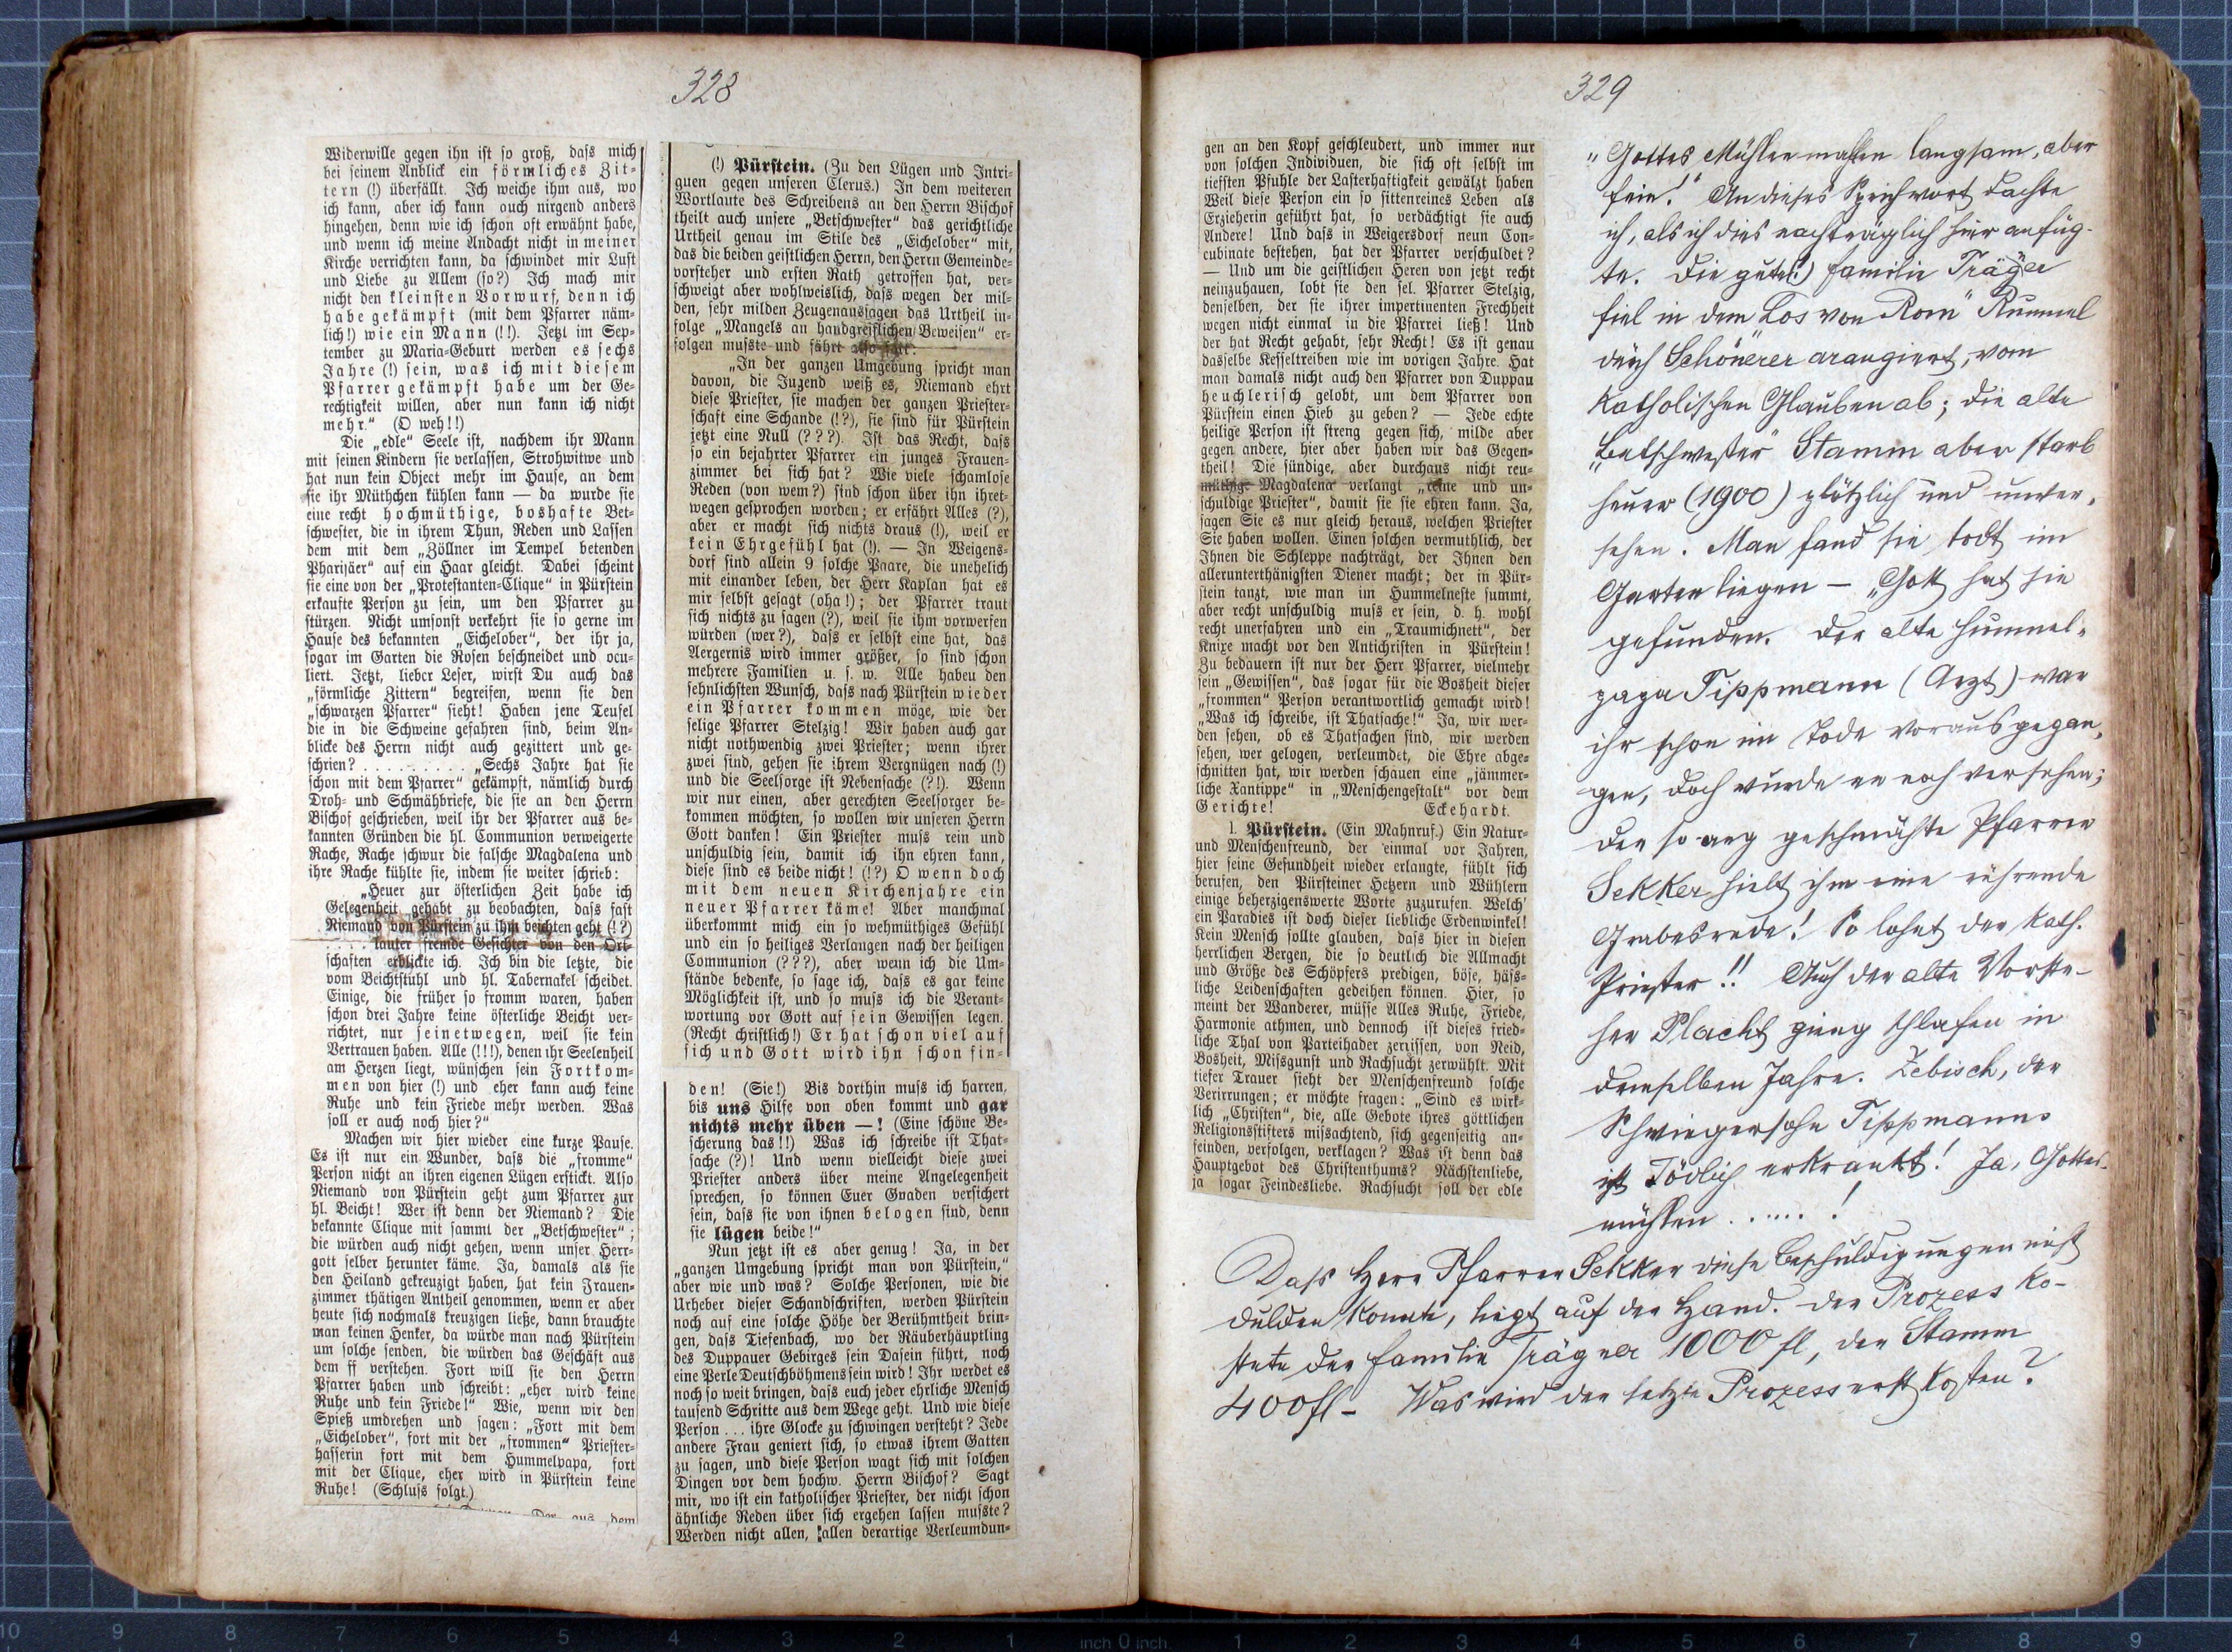 328
Widerwille gegen ihn ist so groß, dass mich
bei seinem Anblick ein förmliches Zit-
tern (!) überfällt. Ich weiche ihm aus, wo
ich kann, aber ich kann auch nirgend anders
hingehen, denn wie ich schon oft erwähnt habe,
und wenn ich meine Andacht nicht in meiner
Kirche verrichten kann, da schwindet mir Lust
und Liebe zu Allem (so?) Ich mach mir
nicht den kleinsten Vorwurf, denn ich
habe gekämpft (mit dem Pfarrer näm-
lich!) wie ein Mann (!!). Jetzt im Sep-
tember zu Maria-Geburt werden es sechs
Jahre (!) sein, was ich mit diesem
Pfarrer gekämpft habe um der Ge-
rechtigkeit willen, aber nun kann ich nicht
mehr." (O weh!!)
Die „edle" Seele ist, nachdem ihr Mann
mit seinen Kindern sie verlassen, Strohwitwe und
hat nun kein Object mehr im Hause, an dem
sie ihr Müthchen kühlen kann — da wurde sie
eine recht hochmüthige, boshafte Bet-
schwester, die in ihrem Thun, Reden und Lassen
dem mit dem „Zöllner im Tempel betenden
Pharisäer" auf ein Haar gleicht. Dabei scheint
sie eine von der „Protestanten-Clique" in Pürstein
erkaufte Person zu sein, um den Pfarrer zu
stürzen. Nicht umsonst verkehrt sie so gerne im
Hause des bekannten „Eichelober", der ihr ja,
sogar im Garten die Rosen beschneidet und ocu-
liert. Jetzt, lieber Leser, wirst Du auch das
„förmliche Zittern" begreifen, wenn sie den
„schwarzen Pfarrer" sieht! Haben jene Teufel
die in die Schweine gefahren sind, beim An-
blicke des Herrn nicht auch gezittert und ge-
schrien? . . . . . . . . . . „Sechs Jahre hat sie
schon mit dem Pfarrer" gekämpft, nämlich durch
Droh- und Schmähbriefe, die sie an den Herrn
Bischof geschrieben, weil ihr der Pfarrer aus be-
kannten Gründen die hl. Communion verweigerte
Rache, Rache schwur die falsche Magdalena und
ihre Rache kühlte sie, indem sie weiter schrieb:
„Heuer zur österlichen Zeit habe ich
Gelegenheit gehabt zu beobachten, dass fast
Niemand von Pürstein zu ihm beichten geht (!?)
. . . . . lauter fremde Gesichter von den Ort-
schaften erblickte ich. Ich bin die letzte, die
vom Beichtstuhl und hl. Tabernakel scheidet.
Einige, die früher so fromm waren, haben
schon drei Jahre keine österliche Beicht ver-
richtet, nur seinetwegen, weil sie kein
Vertrauen haben. Alle (!!!), denen ihr Seelenheil
am Herzen liegt, wünschen sein Fortkom-
men von hier (!) und eher kann auch keine
Ruhe und kein Friede mehr werden. Was
soll er auch noch hier?"
Machen wir hier wieder eine kurze Pause.
Es ist nur ein Wunder, dass die „fromme"
Person nicht an ihren eigenen Lügen erstickt. Also
Niemand von Pürstein geht zum Pfarrer zur
hl. Beicht! Wer ist denn der Niemand? Die
bekannte Clique mit sammt der „Betschwester";
die würden auch nicht gehen, wenn unser Herr-
gott selber herunter käme. Ja, damals als sie
den Heiland gekreuzigt haben, hat kein Frauen-
zimmer thätigen Antheil genommen, wenn er aber
heute sich nochmals kreuzigen ließe, dann brauchte
man keinen Henker, da würde man nach Pürstein
um solche senden, die würden das Geschäft aus
dem ff verstehen. Fort will sie den Herrn
Pfarrer haben und schreibt: „eher wird keine
Ruhe und kein Friede!" Wie, wenn wir den
Spieß umdrehen und sagen: „Fort mit dem
„Eichelober", fort mit der „frommen" Priester-
hasserin fort mit dem Hummelpapa, fort
mit der Clique, eher wird in Pürstein keine
Ruhe! (Schluss folgt.)
Der aus dem
(!) Pürstein. (Zu den Lügen und Intri-
guen gegen unseren Clerus.) In dem weiteren
Wortlaute des Schreibens an den Herrn Bischof
theilt auch unsere „Betschwester" das gerichtliche
Urtheil genau im Stile des „Eichelober" mit,
das die beiden geistlichen Herrn, den Herrn Gemeinde-
vorsteher und ersten Rath getroffen hat, ver-
schweigt aber wohlweislich, dass wegen der mil-
den, sehr milden Zeugenaussagen das Urtheil in-
folge „Mangels an handgreiflichen Beweisen" er-
folgen musste und fährt also fort:
„In der ganzen Umgebung spricht man
davon, die Jugend weiß es, Niemand ehrt
diese Priester, sie machen der ganzen Priester-
schaft eine Schande (!?), sie sind für Pürstein
jetzt eine Null (???). Ist das Recht, dass
so ein bejahrter Pfarrer ein junges Frauen-
zimmer bei sich hat? Wie viele schamlose
Reden (von wem?) sind schon über ihn ihret-
wegen gesprochen worden; er erfährt Alles (?),
aber er macht sich nichts draus (!), weil er
kein Ehrgefühl hat (!). — In Weigens-
dorf sind allein 9 solche Paare, die unehelich
mit einander leben, der Herr Kaplan hat es
mir selbst gesagt (oha!); der Pfarrer traut
sich nichts zu sagen (?), weil sie ihm vorwerfen
würden (wer?), dass er selbst eine hat, das
Aergernis wird immer größer, so sind schon
mehrere Familien u. s. w. Alle habeu den
sehnlichsten Wunsch, dass nach Pürstein wieder
ein Pfarrer kommen möge, wie der
selige Pfarrer Stelzig! Wir haben auch gar
nicht nothwendig zwei Priester; wenn ihrer
zwei sind, gehen sie ihrem Vergnügen nach (!)
und die Seelsorge ist Nebensache (?!). Wenn
wir nur einen, aber gerechten Seelsorger be-
kommen möchten, so wollen wir unseren Herrn
Gott danken! Ein Priester muss rein und
unschuldig sein, damit ich ihn ehren kann,
diese sind es beide nicht! (!?) O wenn doch
mit dem neuen Kirchenjahre ein
neuer Pfarrer käme! Aber manchmal
überkommt mich ein so wehmüthiges Gefühl
und ein so heiliges Verlangen nach der heiligen
Communion (???), aber wenn ich die Um-
stände bedenke, so sage ich, dass es gar keine
Möglichkeit ist, und so muss ich die Verant-
wortung vor Gott auf sein Gewissen legen.
(Recht christlich!) Er hat schon viel auf
sich und Gott wird ihn schon fin-
den! (Sie!) Bis dorthin muss ich harren,
bis uns Hilfe von oben kommt und gar
nichts mehr üben —! (Eine schöne Be-
scherung das!!) Was ich schreibe ist That-
sache (?)! Und wenn vielleicht diese zwei
Priester anders über meine Angelegenheit
sprechen, so können Euer Gnaden versichert
sein, dass sie von ihnen belogen sind, denn
sie lügen beide!"
Nun jetzt ist es aber genug! Ja, in der
„ganzen Umgebung spricht man von Pürstein,"
aber wie und was? Solche Personen, wie die
Urheber dieser Schandschriften, werden Pürstein
noch auf eine solche Höhe der Berühmtheit brin-
gen, dass Tiefenbach, wo der Räuberhäuptling
des Duppauer Gebirges sein Dasein führt, noch
eine Perle Deutschböhmens sein wird! Ihr werdet es
noch so weit bringen, dass euch jeder ehrliche Mensch
tausend Schritte aus dem Wege geht. Und wie diese
Person . . . ihre Glocke zu schwingen versteht? Jede
andere Frau geniert sich, so etwas ihrem Gatten
zu sagen, und diese Person wagt sich mit solchen
Dingen vor dem hochw. Herrn Bischof? Sagt
mir, wo ist ein katholischer Priester, der nicht schon
ähnliche Reden über sich ergehen lassen musste?
Werden nicht allen, allen derartige Verleumdun-
329
gen an den Kopf geschleudert, und immer nur
von solchen Individuen, die sich oft selbst im
tiefsten Pfuhle der Lasterhaftigkeit gewälzt haben
Weil diese Person ein so sittenreines Leben als
Erzieherin geführt hat, so verdächtigt sie auch
Andere! Und dass in Weigersdorf neun Con-
cubinate bestehen, hat der Pfarrer verschuldet?
— Und um die geistlichen Heren von jetzt recht
neinzuhauen, lobt sie den sel. Pfarrer Stelzig,
denselben, der sie ihrer impertinenten Frechheit
wegen nicht einmal in die Pfarrei ließ! Und
der hat Recht gehabt, sehr Recht! Es ist genau
dasselbe Kesseltreiben wie im vorigen Jahre. Hat
man damals nicht auch den Pfarrer von Duppau
heuchlerisch gelobt, um dem Pfarrer von
Pürstein einen Hieb zu geben? — Jede echte
heilige Person ist streng gegen sich, milde aber
gegen andere, hier aber haben wir das Gegen-
theil! Die sündige, aber durchaus nicht reu-
müthige Magdalena verlangt „reine und un-
schuldige Priester", damit sie sie ehren kann. Ja,
sagen Sie es nur gleich heraus, welchen Priester
Sie haben wollen. Einen solchen vermuthlich, der
Ihnen die Schleppe nachträgt, der Ihnen den
allerunterthänigsten Diener macht; der in Pür-
stein tanzt, wie man im Hummelneste summt,
aber recht unschuldig muss er sein, d. h. wohl
recht unerfahren und ein „Traumichnett", der
Knixe macht vor den Antichristen in Pürstein!
Zu bedauern ist nur der Herr Pfarrer, vielmehr
sein „Gewissen", das sogar für die Bosheit dieser
„frommen" Person verantwortlich gemacht wird!
„Was ich schreibe, ist Thatsache!" Ja, wir wer-
den sehen, ob es Thatsachen sind, wir werden
sehen, wer gelogen, verleumdet, die Ehre abge-
schnitten hat, wir werden schauen eine „jämmer-
liche Xantippe" in „Menschengestalt" vor dem
Gerichte! Eckehardt.
l. Pürstein. (Ein Mahnruf.) Ein Natur-
und Menschenfreund, der einmal vor Jahren,
hier seine Gesundheit wieder erlangte, fühlt sich
berufen, den Pürsteiner Hetzern und Wühlern
einige beherzigenswerte Worte zuzurufen. Welch'
ein Paradies ist doch dieser liebliche Erdenwinkel!
Kein Mensch sollte glauben, dass hier in diesen
herrlichen Bergen, die so deutlich die Allmacht
und Größe des Schöpfers predigen, böse, häss-
liche Leidenschaften gedeihen können. Hier, so
meint der Wanderer, müsse Alles Ruhe, Friede,
Harmonie athmen, und dennoch ist dieses fried-
liche Thal von Parteihader zerrissen, von Neid,
Bosheit, Missgunst und Rachsucht zerwühlt. Mit
tiefer Trauer sieht der Menschenfreund solche
Verirrungen; er möchte fragen: „Sind es wirk-
lich „Christen", die, alle Gebote ihres göttlichen
Religionsstifters missachtend, sich gegenseitig an-
feinden, verfolgen, verklagen? Was ist denn das
Hauptgebot des Christenthums? Nächstenliebe,
ja sogar Feindesliebe. Rachsucht soll der edle
„Gottes Mühlen mahlen langsam, aber
fein!" An dieses Sprichwort dachte
ich, als ich dies nachträglich hier anfüg-
te. Die gute(!) Familie Träger
fiel in dem „Los von Rom" Rummel
durch Schönerer arangiert, vom
Katholischen Glauben ab; die alte
„Betschwester" Stamm aber starb
heuer (1900) plötzlich und unver-
sehen. Man fand sie todt im
Garten liegen — „Gott hat sie
gefunden. Der alte Hummel-
papa Tippmann (Arzt) war
ihr schon im Tode vorausgegan-
gen, doch wurde er noch versehen;
der so arg geschmähte Pfarrer
Sekker hielt ihm eine rührende
Grabesrede! So lohnt der kath.
Priester!! Auch der alte Vorste-
her Placht gieng schlafen in
demselben Jahre. Zebisch, der
Schwiegersohn Tippmanns
ist Tödlich erkrankt! Ja, Gottes-
mühlen . . . . . . !
Dass Herr Pfarrer Sekker diese Beschuldigungen nicht
dulden konnte, liegt auf der Hand. Der Prozess ko-
stete der Familie Trägner 1000 fl, der Stamm
400 fl – Was wird der letzte Prozess erst kosten?